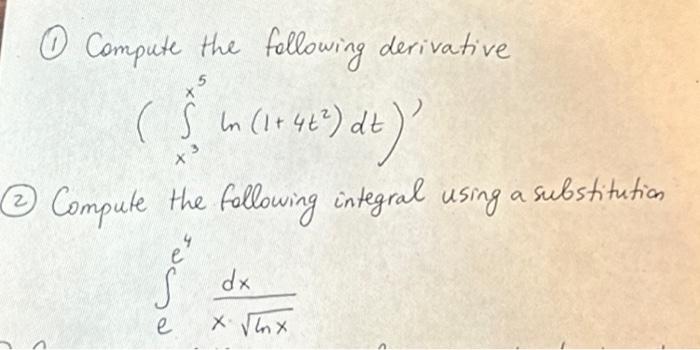 ① Compute the following derivative
( ∫_{x^3}^{x^5} ln (1+4t²) dt )'
② Compute the following integral using a substitution
∫_{e}^{e^4} dx / (x·√(ln x))